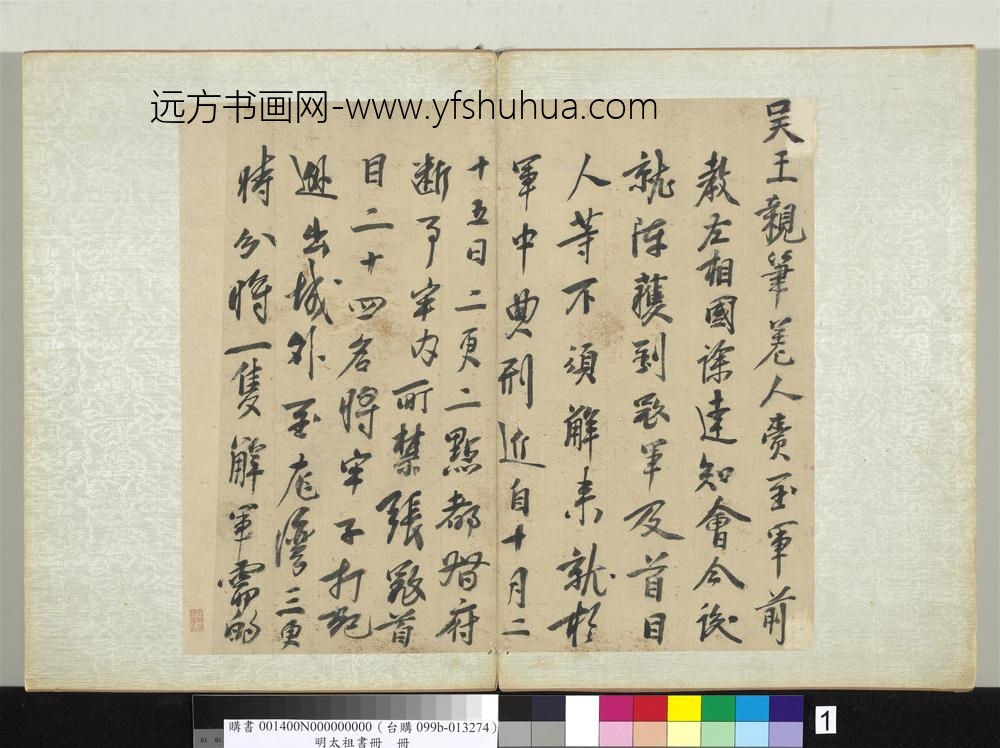 远方书画网-www.yfshuhua.com
吴王親筆差人賫至軍前
教左相國徐達知會今後
就陣獲到寇軍及首目
人等不須解来就於
軍中典刑近自十月二
十五日二更二點都督府
斷事牢内所禁張寇首
目二十四名將牢子打死
逃出城外至龙灣三更
時分將一隻解軍需的
購書 001400N000000000 (台購 099b-013274)
明太祖書冊 冊
1